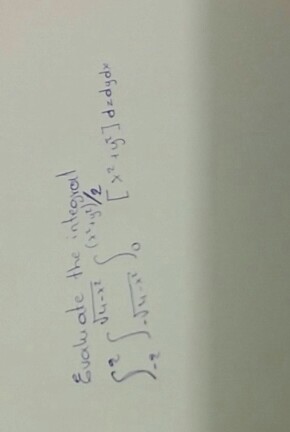 Evaluate the integral
∫_{-2}^{2} ∫_{-√4-x²}^{√4-x²} ∫_{0}^{(x²+y²)/2} [x²+y²] dzdydx